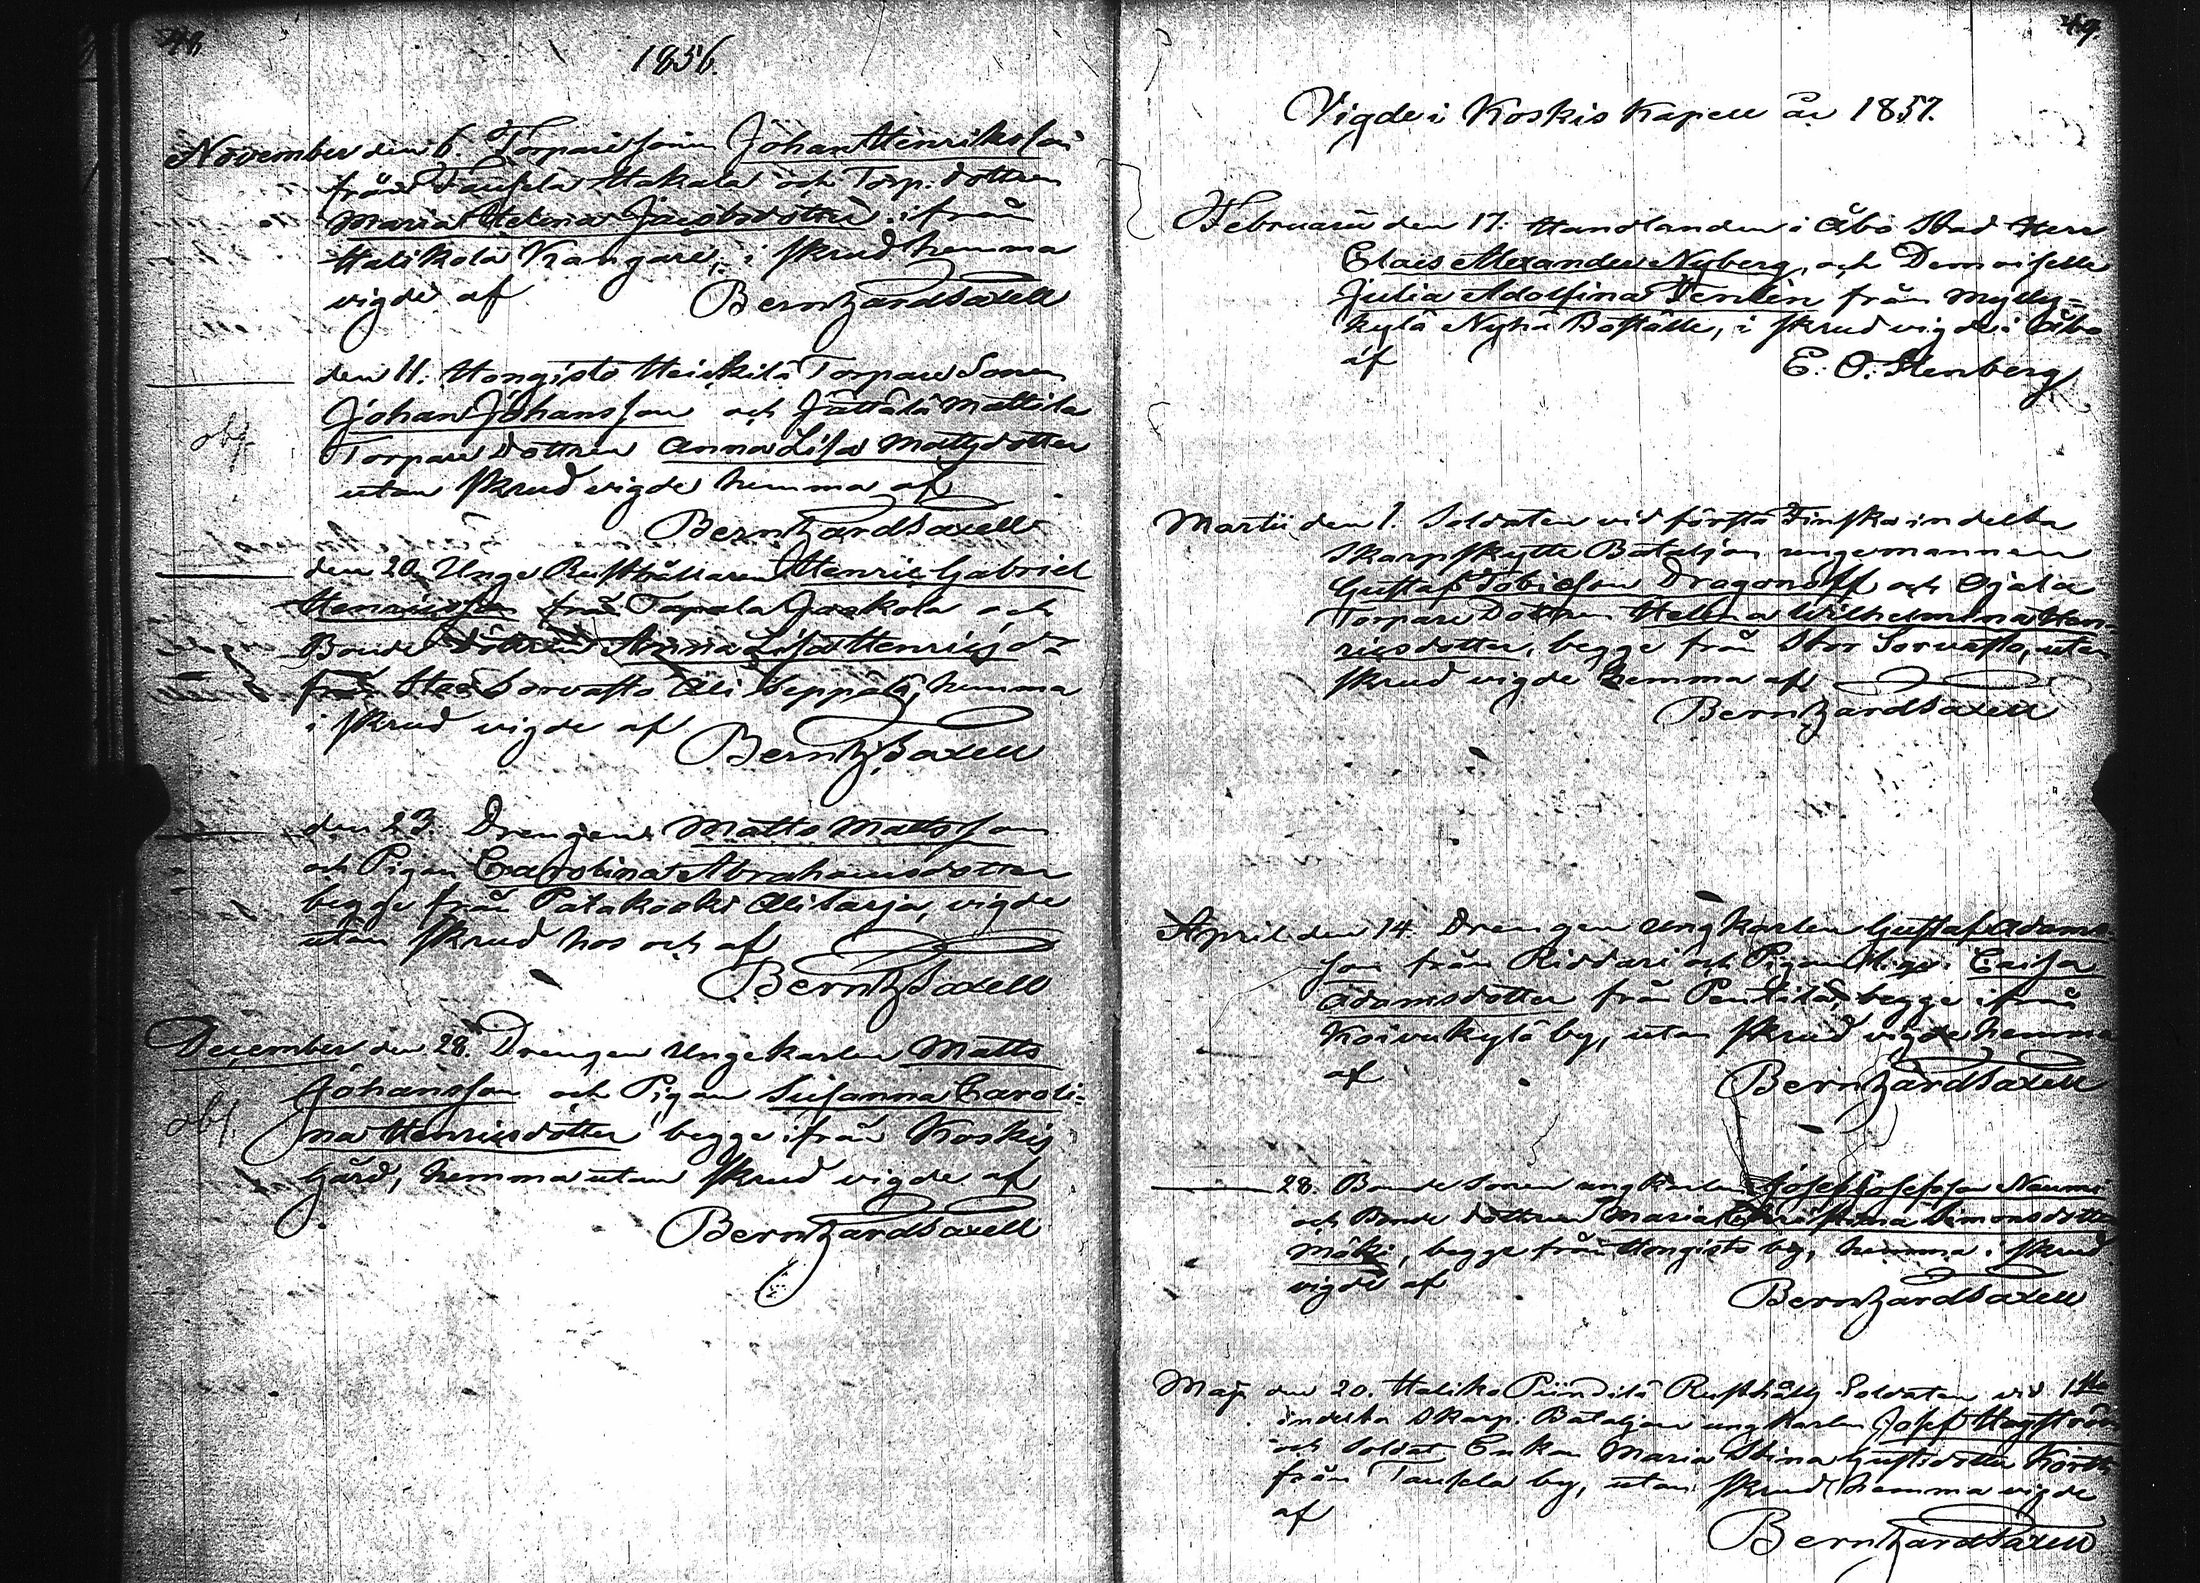 48.
1856.
November den 6. Torparesonen Johan Henriksson
från Taufela Hakala och Torp. dottren
Maria Helena Jacobsdotter ifrån
Halikola Kangare, i skrud hemma
vigde af Berntzard Saxell
den 11. Hongisto Heickilä Torpare Sonen
Johan Johansson och Jättälä Mattila
obs.
Torpare Dottren Anna Lisa Mattsdotter
utan skrud vigde hemma af
Berntzard Saxell
den 20. Unge Rusthållaren Henric Gabriel
Henricsson från Tapala Jaakola och
Bonde Dottren Anna Lisa Henricsd:r
från Stor Sorvasto Ali Seppälä, hemma
i skrud vigde af
Berntz Saxell
den 23. Drengen Matts Mattsson
och Pigan Carolina Abrahamsdotter
begge från Patakoski Alisarja, vigde
utan skrud hos och af
Berntz Saxell
December den 28. Drengen Ungekarlen Matts
Johansson och Pigan Susanna Caroli=
obs.
na Henricsdotter begge ifrån Koskis
gård, hemma utan skrud vigde af
Berntzard Saxell
49.
Vigde i Koskis Kapell år 1857.
Februarii den 17. Handlanden i Åbo Stad Herr
Claes Alexander Nyberg, och Demoiselle
Julia Adolfina Tenlén från Mylly=
kylä Nyhä Boställe, i skrud vigde i Åbo
af E. O. Stenberg
Martii den 1. Soldaten vid första Finska indelta
Skarpskytte Bataljon ungemannen
Gustaf Tobiesson Dragonoff och Ojala
Torpare Dottren Helena Wilhelmina Hen=
ricsdotter, begge från Stor Sorvasto, utan
skrud vigde hemma af
Berntzard Saxell
April den 14. Drengen Ungkarlen Gustaf Adams=
son från Riddari och Pigan Caisa
Adamsdotter från Pentilä, begge ifrån
Koivukylä by, utan skrud vigde hemma
af Berntzard Saxell
28. Bonde Sonen ungkarlen Josef Josefsson Naumi
och Bonde dottren Maria Christina Simonsdotter
Mäki, begge från Hongisto by, hemma i skrud
vigde af
Berntzard Saxell
Maji den 20. Halika Piindilä Rusthålls Soldaten vid 1sta
indelta Skarp. Bataljon ungkarlen Josef Hagström
och Soldat Enkan Maria Stina Gustsdotter
från Taufela by, utan skrud hemma vigde
af
Berntzard Saxell